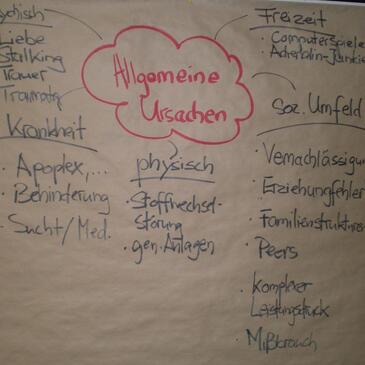 Allgemeine
Ursachen
Liebe
Stalking
Trauer
Krankheit
· Apoplex,...
· Behinderung
· Sucht/Med.
physisch
· Stoffwechsel-
störung
· gen. Anlagen
Freizeit
· Computerspiele
· Adrenalin-Junkie
Soz. Umfeld
· Vernachlässigun
· Erziehungfehler
· Familienstrukturen
· Peers
· Komplexer
Leistungsdruck
· Mißbrauch